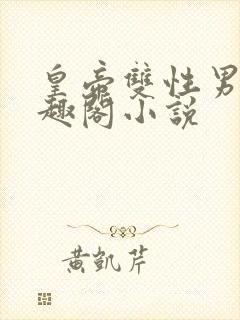 皇帝雙性男
趣閣小說
黃凱芹